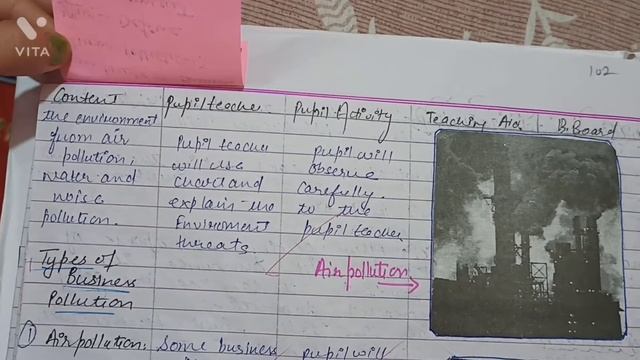 VITA
102
Content
Pupil teacher
Pupil Activity
Teaching Aids
B.Board
the environment
from air
pollution,
water and
noise
pollution.
Pupil teacher
will use
chart and
explain the
Environment
threats
Pupil will
observe
carefully.
to the
pupil teacher
Air pollution
Types of
Business
Pollution
① Air pollution:
Some business
pupil will